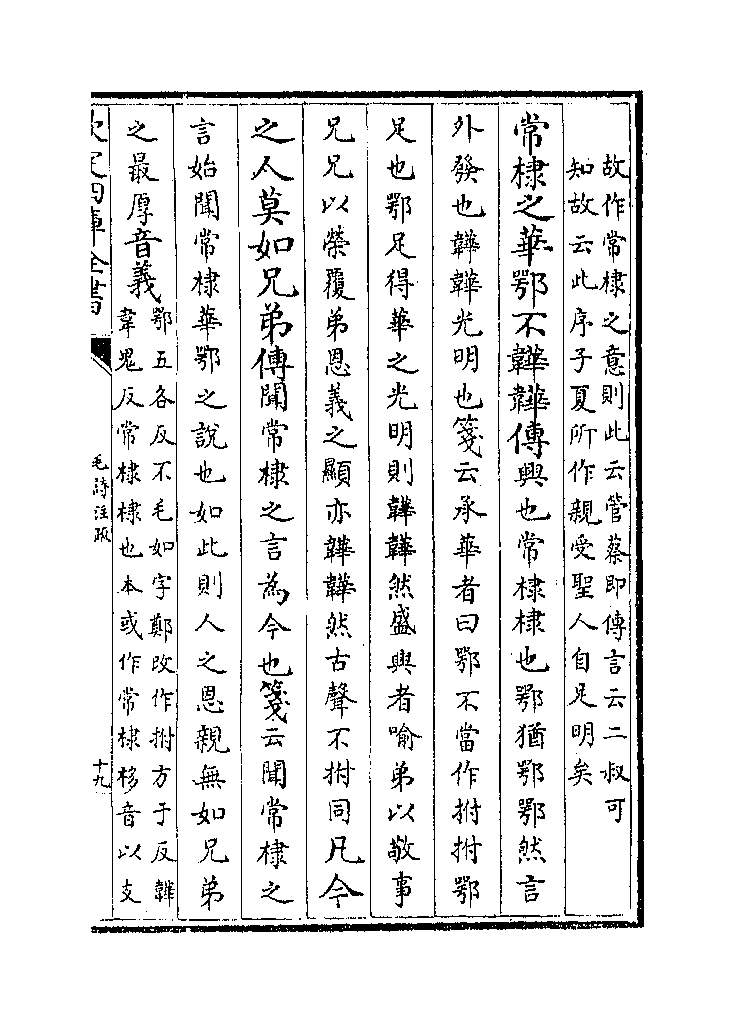 故作常棣之意則此云管蔡即傳言云二叔可
知故云此序子夏所作親受聖人自足明矣
常棣之華鄂不韡韡傳興也常棣棣也鄂猶鄂鄂然言
外發也韡韡光明也箋云承華者曰鄂不當作拊拊鄂
足也鄂足得華之光明則韡韡然盛興者喻弟以敬事
兄兄以榮覆弟恩義之顯亦韡韡然古聲不拊同凡今
之人莫如兄弟傳聞常棣之言為今也箋云聞常棣之
言始聞常棣華鄂之說也如此則人之恩親無如兄弟
之最厚音義
鄂五各反不毛如字鄭改作拊方于反韡
韋鬼反常棣棣也本或作常棣栘音以支
欽定四庫全書
毛詩注疏
十九